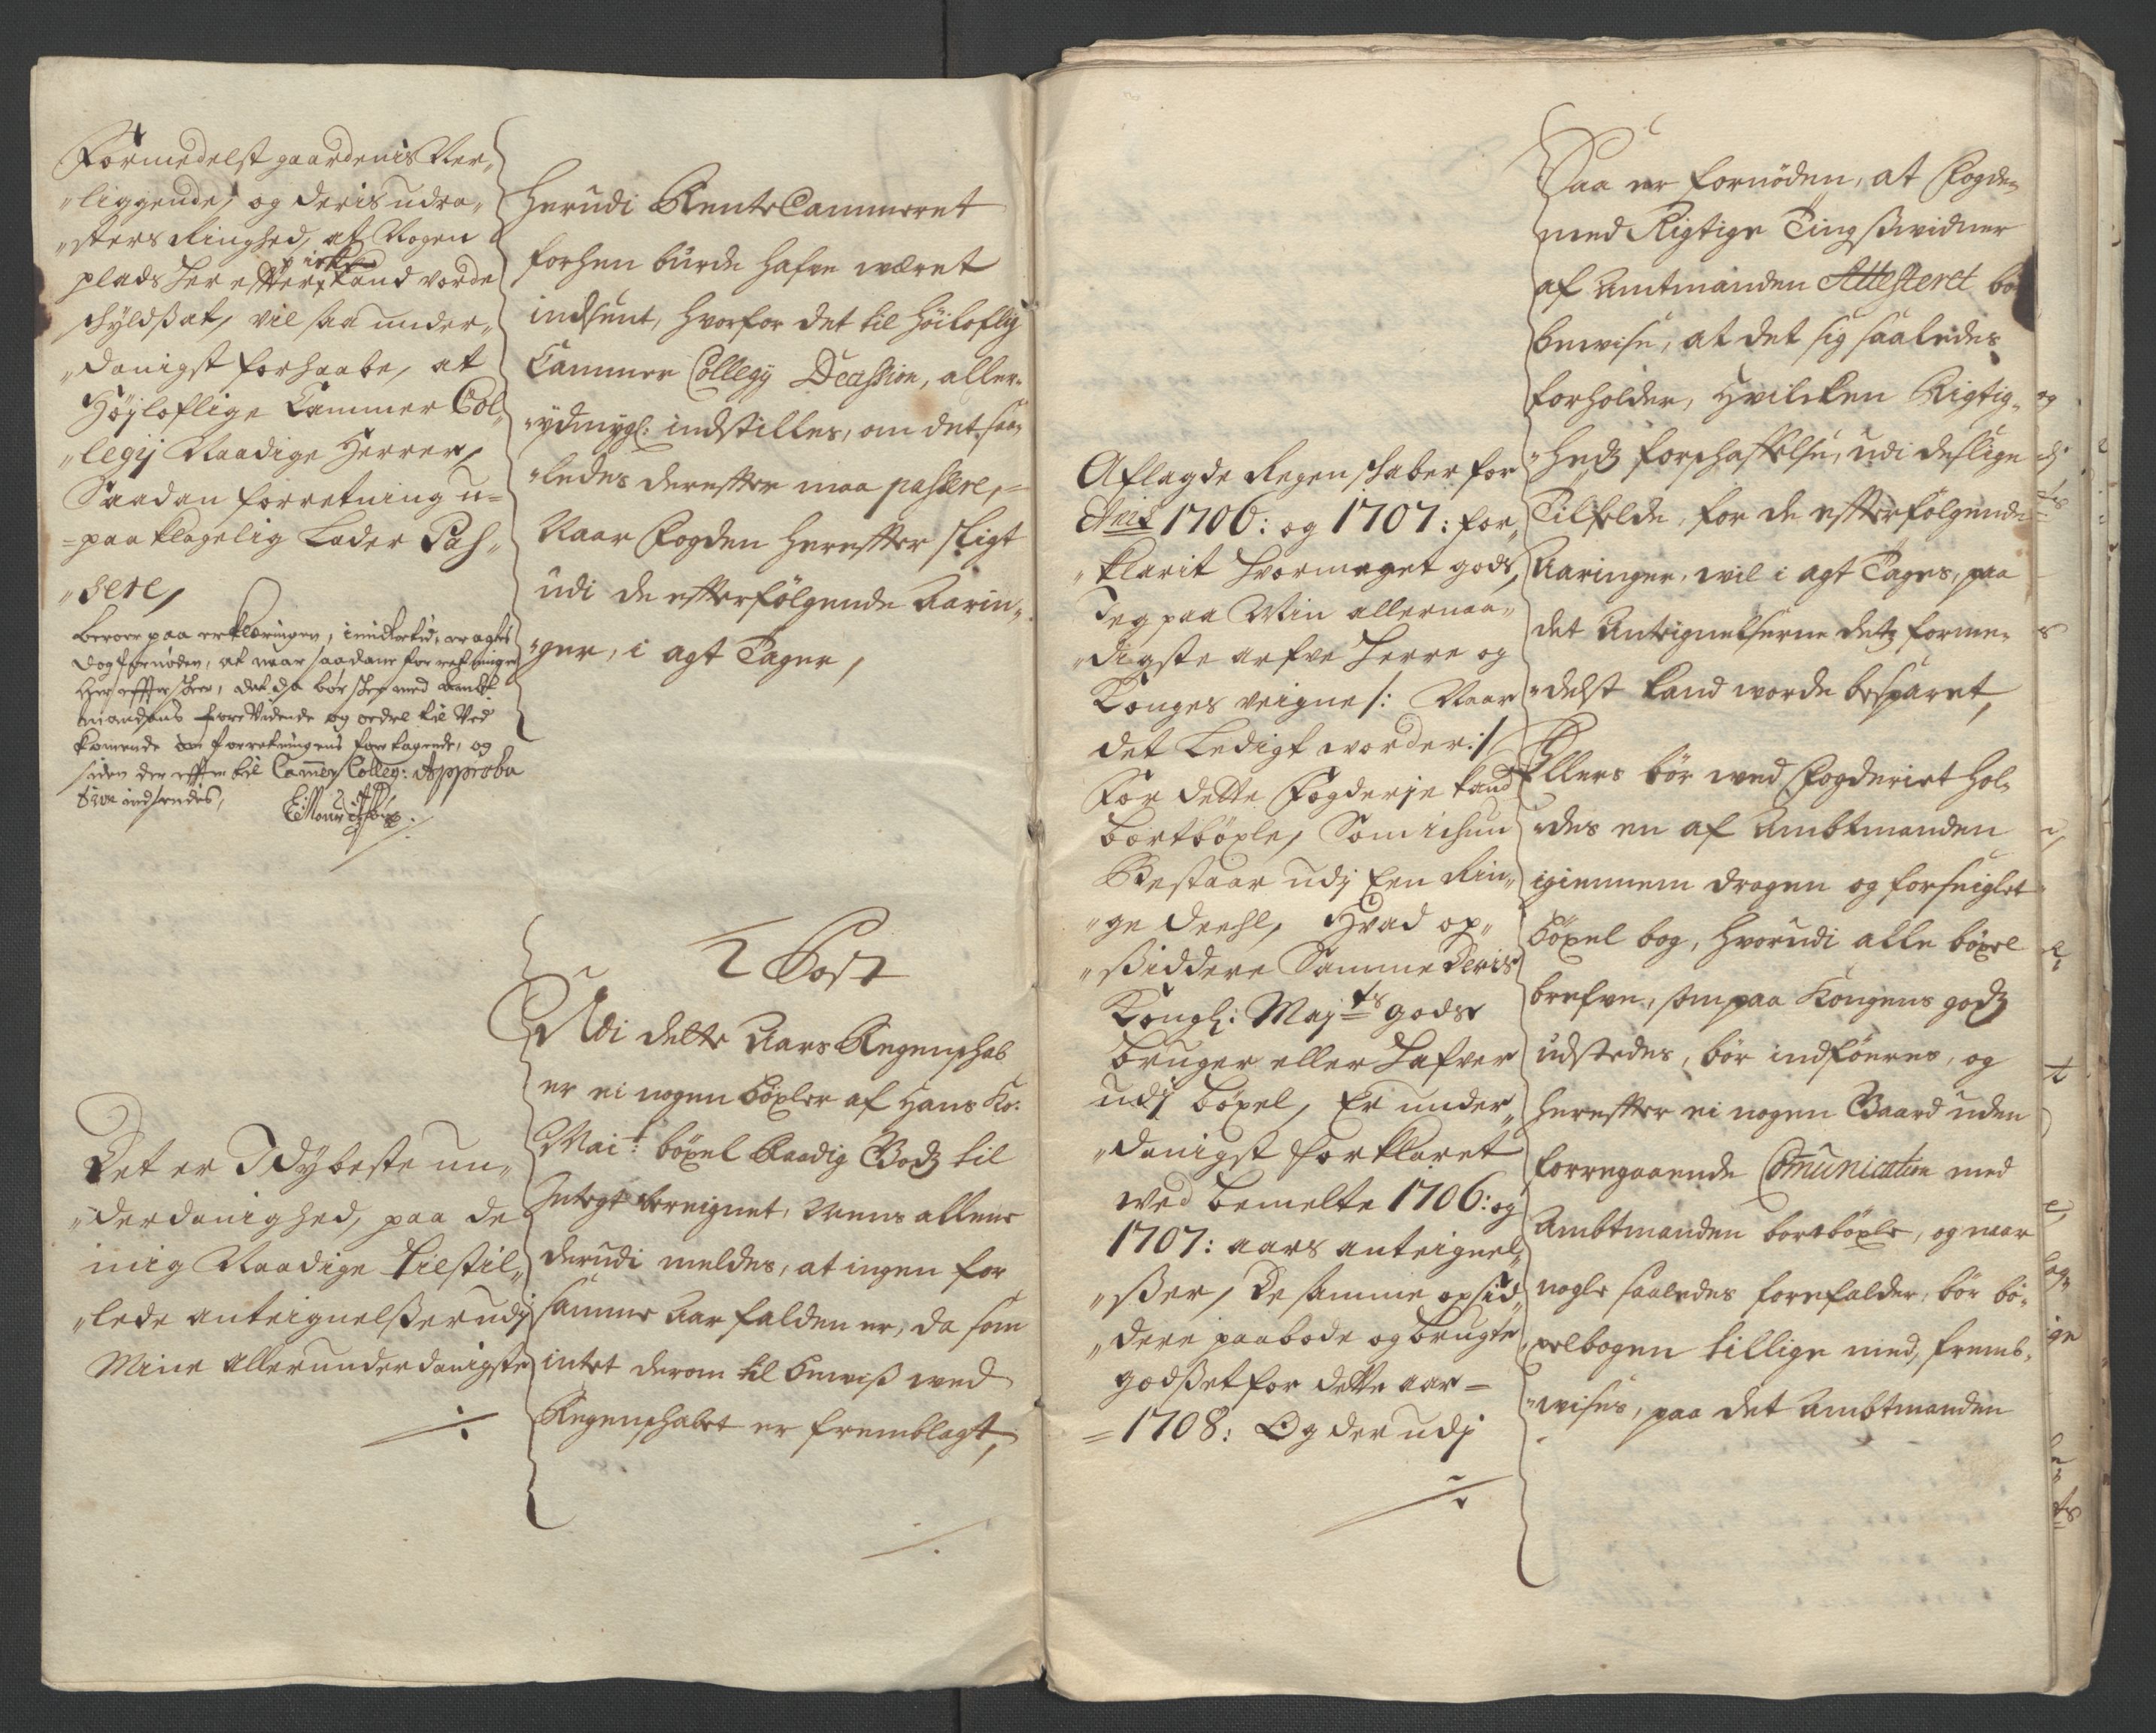 Formedelst gaardenis Ner„
„liggende, og deris udra„
„sters Ringhed, af Nogen
plads her effter, kand vorde
skyldsat, vil saa under„
„danigst forhaabe, at
Højloflige Cammer Col„
„legij Naadige Herrer,
Saadan forretning u=
=paa klagelig Lader Pas„
„sere,
beroer paa erklæringen, imidlertid, eragtes
dog fornøden, at naar saadane forretninger
her effter skeer, det da bør skee med ambt
mandens forre Vidende og ordre til Ved
komende om forretningens foretagende, og
siden der effter til Cammer Colleg: Approba
tion indsendes,
Herudi Rente Cammeret
forhen burde hafve wæret
indsent, hvorfor det til Höiloflig
Cammer Collegij Decission, aller„
„ydmygl: indstilles, om det saa„
„ledes derefter maa passere,=
Naar Fogden herefter sligt
udi de efterfölgende Aarin„
„ger, i agt Tager,
2 Post
Udi dette Aars Regenskab
er ei nogen böxler af Hans Ko:
Mai:t böxel Raadig Godz til
Indtegt bereignet, Mens allene
derudi meldes, at ingen for
samme Aar falden er, da som
intet derom til bewiis wed
Regenskabet er fremblagt,
Det er I dybeste un„
„derdanighed, paa de
mig Naadige tilstil„
„lede anteignelsser udj
Mine allerunderdanigste
Aflagde Regenskaber for
Anis 1706: og 1707: for„
„klarit hvormeget gods,
Jeg paa Min allernaa„
„digste arfve herre og
Konges veigne /: Naar
det Ledigt worder :/
For dette Fogderje kand
bortböxle, Som ichun
Bestaar udj Een Rin„
„ge deehl, Hvad op„
„ssiddere Samme Deris
Kongl: May:ts gods
bruger eller Hafver
udj böxel, Er under„
„danigst forklaret
wed bemelte 1706: og
1707: aars anteignel„
„sser, De samme opsid„
„dere paabode og brugte
godsset for dette aar=
=1708: Og der udj
Saa er fornöden, at Fogden
med Rigtige Tingsswidner
af Amtmanden Attesteret bör
bewise, at det sig saaledes
forholder, Hvilcken Rigtig„
„hedz forskaffelse, udi deslige
Tilfelde, for de efterfölgende
Aaringer, wil i agt Tages, paa
det Antignelserne detz forme„
„delst kand worde besparet,
Ellers bör wed Fogderiet Hol„
„des en af Ambtmanden
igiennem dragen og forseiglet
böxel bog, Hvorudi alle böxel
brefve, som paa Kongens godz
udstedes, bör indföeres, og
herefter ei nogen Gaard uden
forregaaende Comunication med
Ambtmanden bortböxle, og naar
nogle saaledes forefalder, bör bö„
„xelbogen tillige med, fremb„
„wises, paa det Ambtmanden